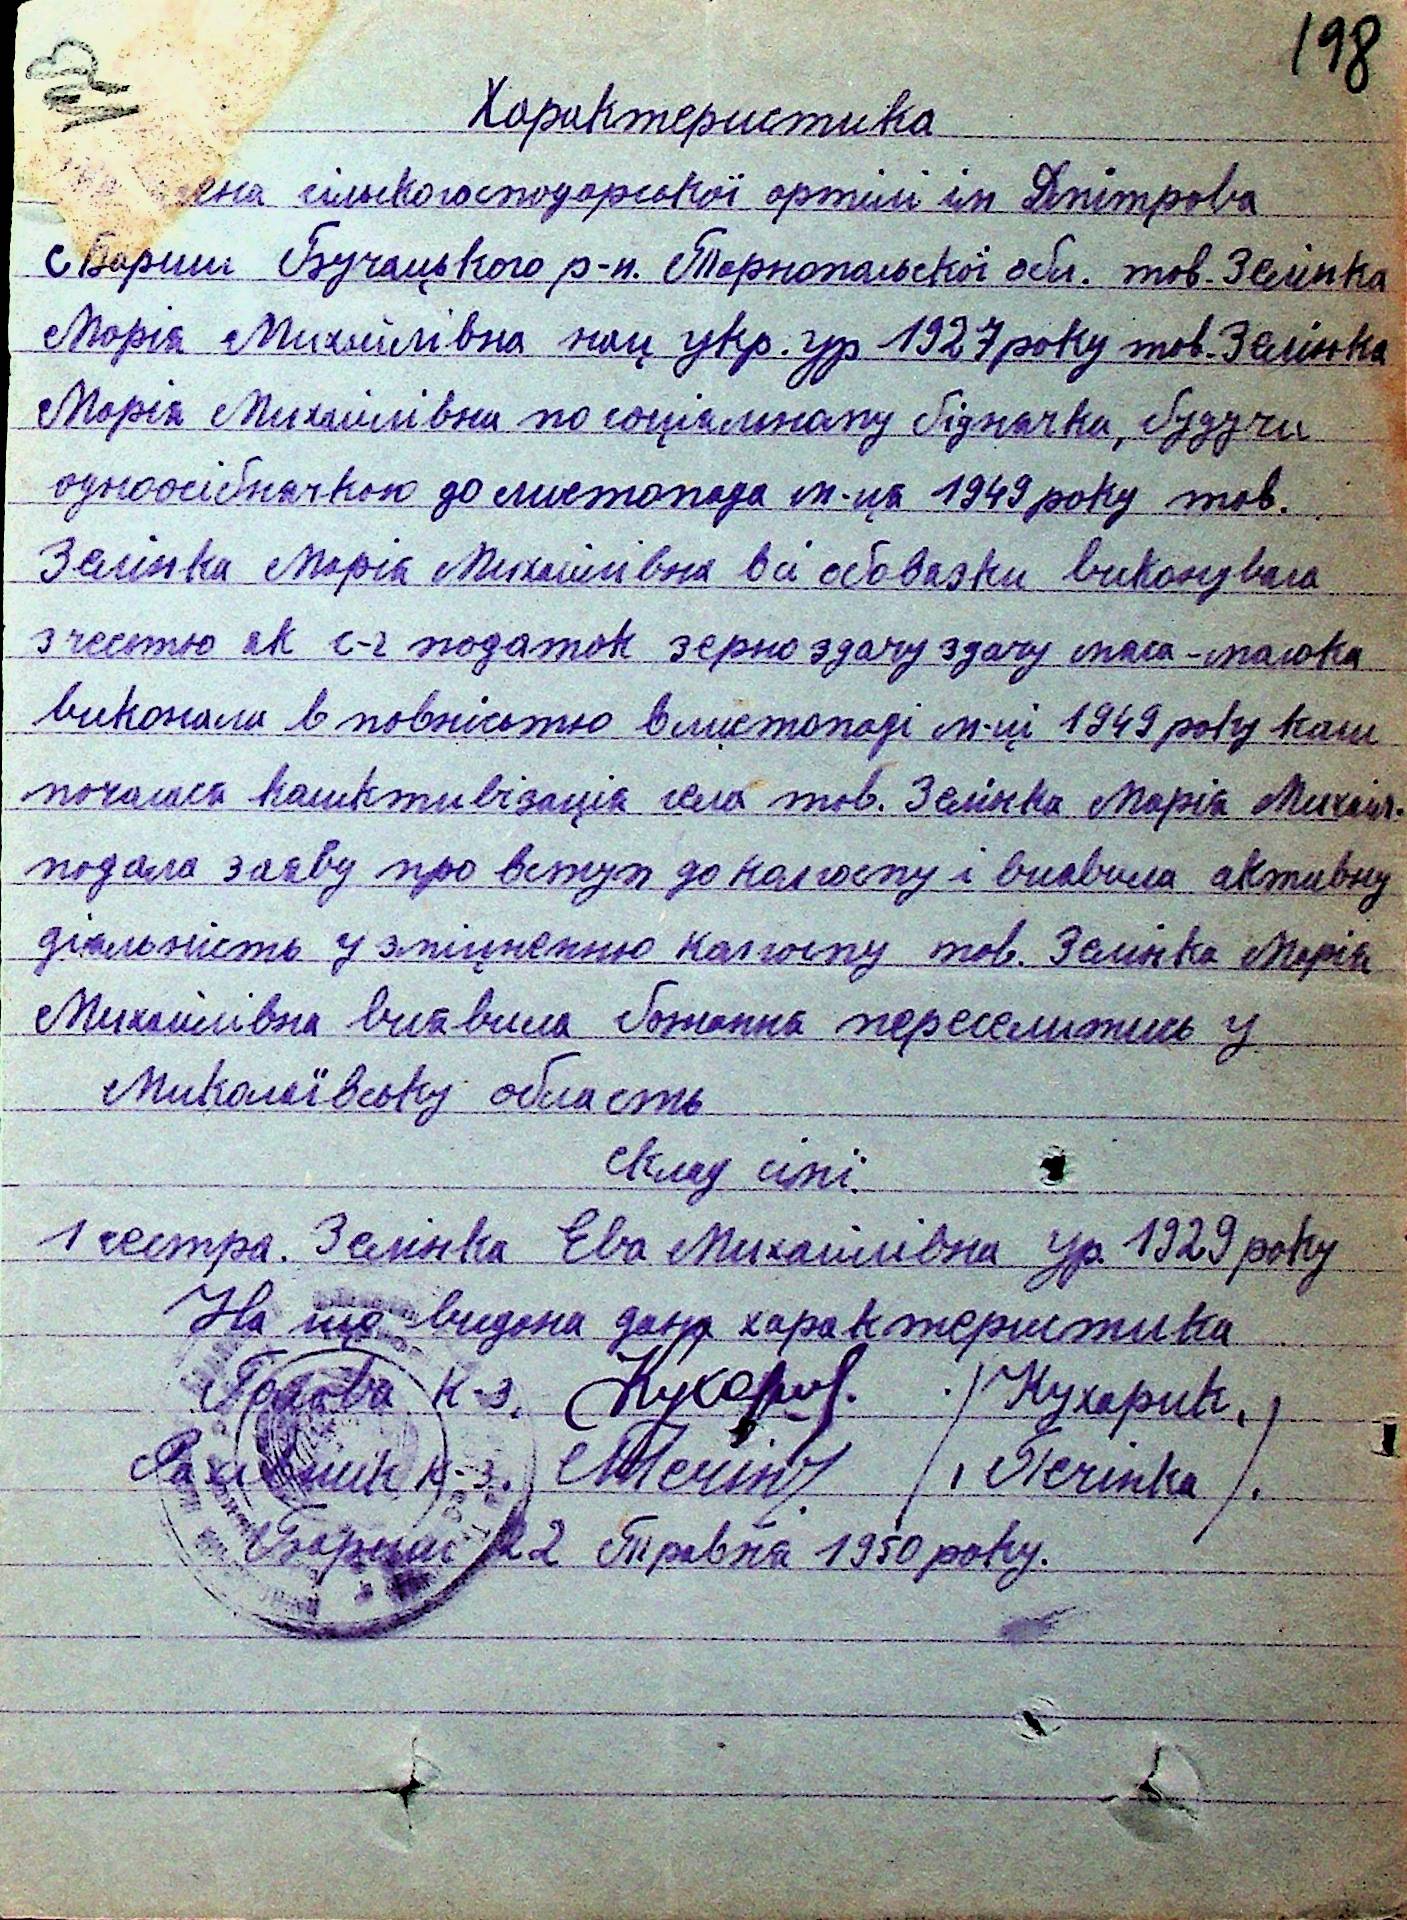 198
Характеристика
члена сільскогосподарської артілі ім Дмітрова
с Бариш Бучацького р-н. Тернопальскої обл. тов. Зелінка
Марія Михайлівна нац укр. ур 1927 року тов. Зелінка
Марія Михайлівна по соціальному біднячка, будучи
одноосібнячкою до листопада м-ця 1949 року тов.
Зелінка Марія Михайлівна всі обовазки виконувала
з честю як с-г податок зерно здачу здачу мяса-малока
виконала в повністю в листопаді м-ці 1949 року кали
почалася каликтивізація села тов. Зелінка Марія Михайл.
подала заяву про вступ до калгоспу і виявила активну
діяльність у зміцненню калгоспу тов. Зелінка Марія
Михайлівна виявила бажання переселитись у
Миколаївську область
Склад сімі.
1 сестра. Зелінка Ева Михайлівна ур. 1929 року
На що видана дана характеристика
Голова к-з, (Кухарик,)
Рахівник к-з. (Печінка).
Бариш 22 Травня 1950 року.